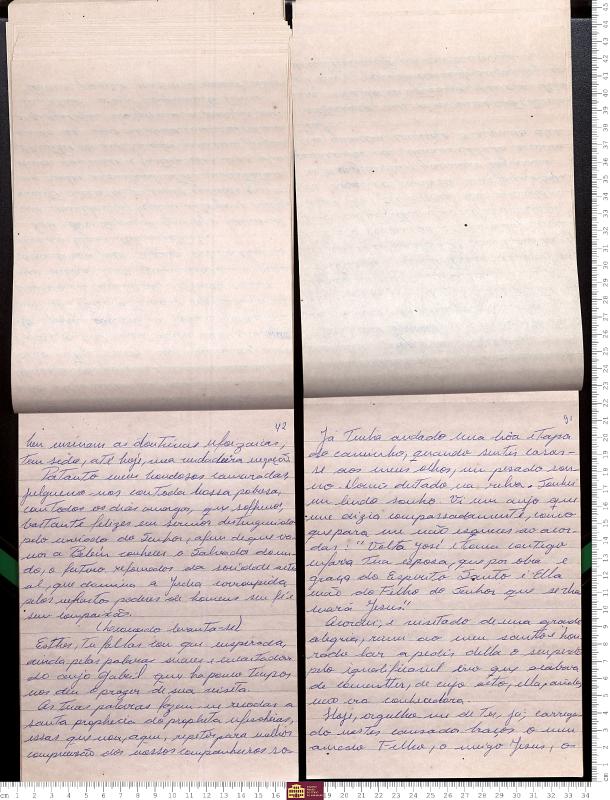 42
bem ensinam as doutrinas
tem sido, até hoje, uma verdadeira negação.
Portanto meus bondosos camaradas,
julguemo-nos com toda nossa pobresa,
com todos os dias amargos, que soffremos,
bastante felizes em sermos distinguidos
pelo enviado do Senhor, afim de que va-
mos a Belém conhecer o Salvador do mun-
do, o futuro reformador da sociedade actu-
al, que domina a Judea corrompida,
pelos nefastos poderes de homens sem fé e
sem compaixão.
(levanta-se)
Esther, Tu fallas com que inspirada,
ainda, pelas palavras suaves e encantadoras
do anjo Gabriel que ha pouco tempo
nos deu o prazer de sua visita.
As tuas palavras fazem-me recordar a
santa prophecia do propheta
essas que vou, aqui, repetir, para melhor
comprehensão dos nossos companheiros so-
91
Já tinha andado uma bôa etapa
do caminho, quando senti cerrar-
se aos meus olhos, um pesado som-
no. Dormi deitado na relva. Sonhei
um lindo sonho. Vi um anjo que
me dizia compassadamente, como
que para eu não esquecer ao acor-
dar: "Volta José e toma comtigo
Tua esposa, que por obra e
graça do Espirito Santo é Ella
mãe do Filho do Senhor que se cha-
mará Jesus".
Acordei, e excitado de uma grande
alegria, rumei ao meu santo e hon-
rado lar a pedir a ella o
pelo injustificavel erro que acabava
de commetter, de cujo acto, ella, ainda,
não era conhecedora.
Hoje, orgulho-me de ter, já, carrega-
do nestes cansados braços o meu
amado Filho, o meigo Jesus, o